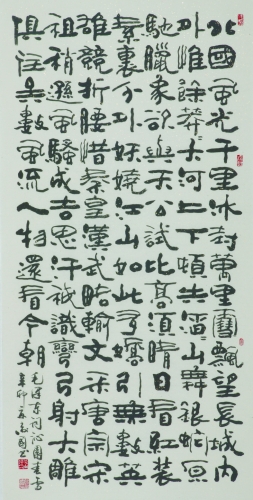 北國風光千里冰封萬里雪飄望長城內
外惟餘莽〻大河上下頓失滔〻山舞銀蛇原
馳臘象欲與天公試比高須晴日看紅裝
素裹分外妖嬈江山如此多嬌引無數英
雄競折腰惜秦皇漢武略輸文采唐宗宋
祖稍遜風騷成吉思汗祇識彎弓射大雕
俱往矣數風流人物還看今朝
毛澤東詞沁園春雪
辛卯年